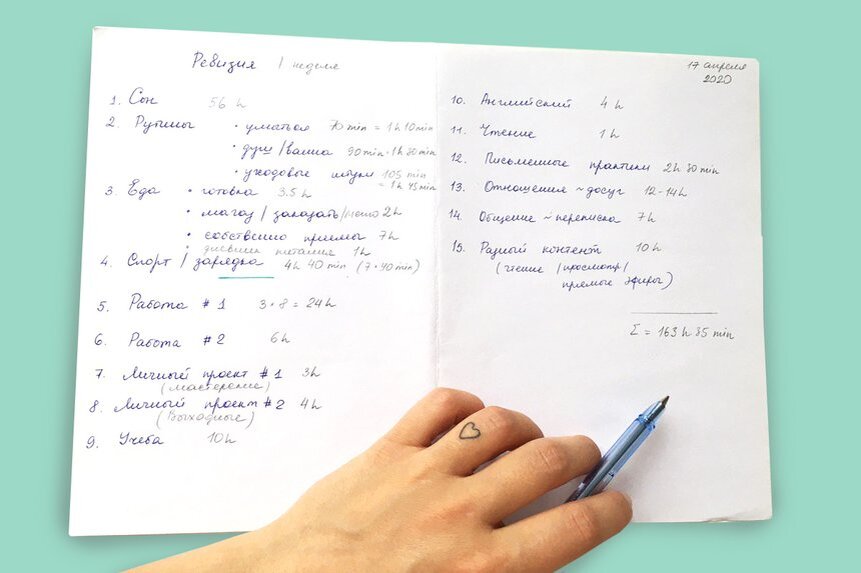 Ревизия 1 неделя
1. Сон 56 h
2. Рутины • умыться 70 min = 1 h 10 min
• душ / ванна 90 min = 1 h 30 min
• уходовые штуки 105 min
= 1 h 45 min
3. Еда • готовка 3.5 h
• магаз / заказать / меню 2 h
• собственно приемы 7 h
• дневник питания 1 h
4. Спорт / зарядка 4 h 40 min (7 • 40 min)
5. Работа # 1 3 • 8 = 24 h
6. Работа # 2 6 h
7. Личный проект # 1 3 h
(мастерение)
8. Личный проект # 2 4 h
(выходные)
9. Учеба 10 h
17 апреля
2020
10. Английский 4 h
11. Чтение 1 h
12. Письменные практики 2 h 30 min
13. Отношения ~ досуг 12-14 h
14. Общение ~ переписка 7 h
15. Разный контент 10 h
(чтение / просмотр /
прямые эфиры)
Σ = 163 h 35 min